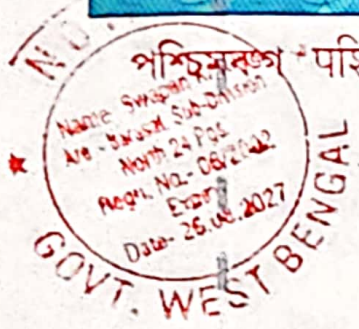 পশ্চিমবঙ্গ পশ্চি
Name: Swapan
Are - Barasat Sub-Division
North 24 Pgs
Regn. No.- 06/20
Date- 26.   .2027
GOVT. WEST BENGAL